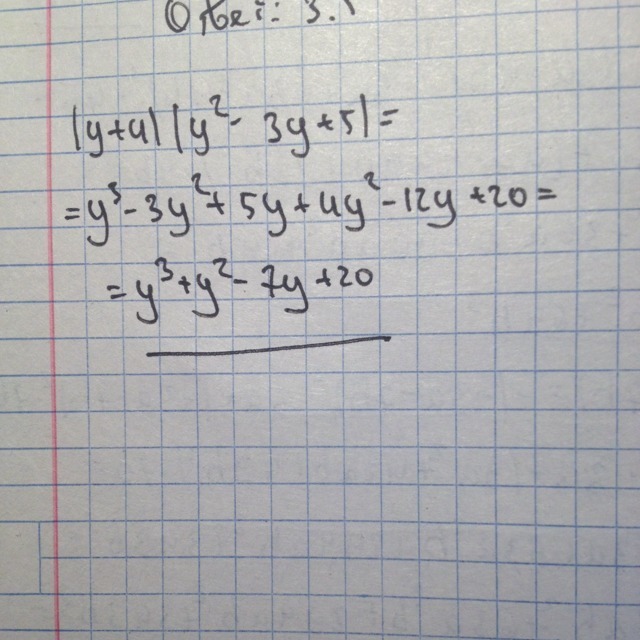 Ответ: 3.
|y+4||y²-3y+5|=
=y³-3y²+5y+4y²-12y+20=
=y³+y²-7y+20